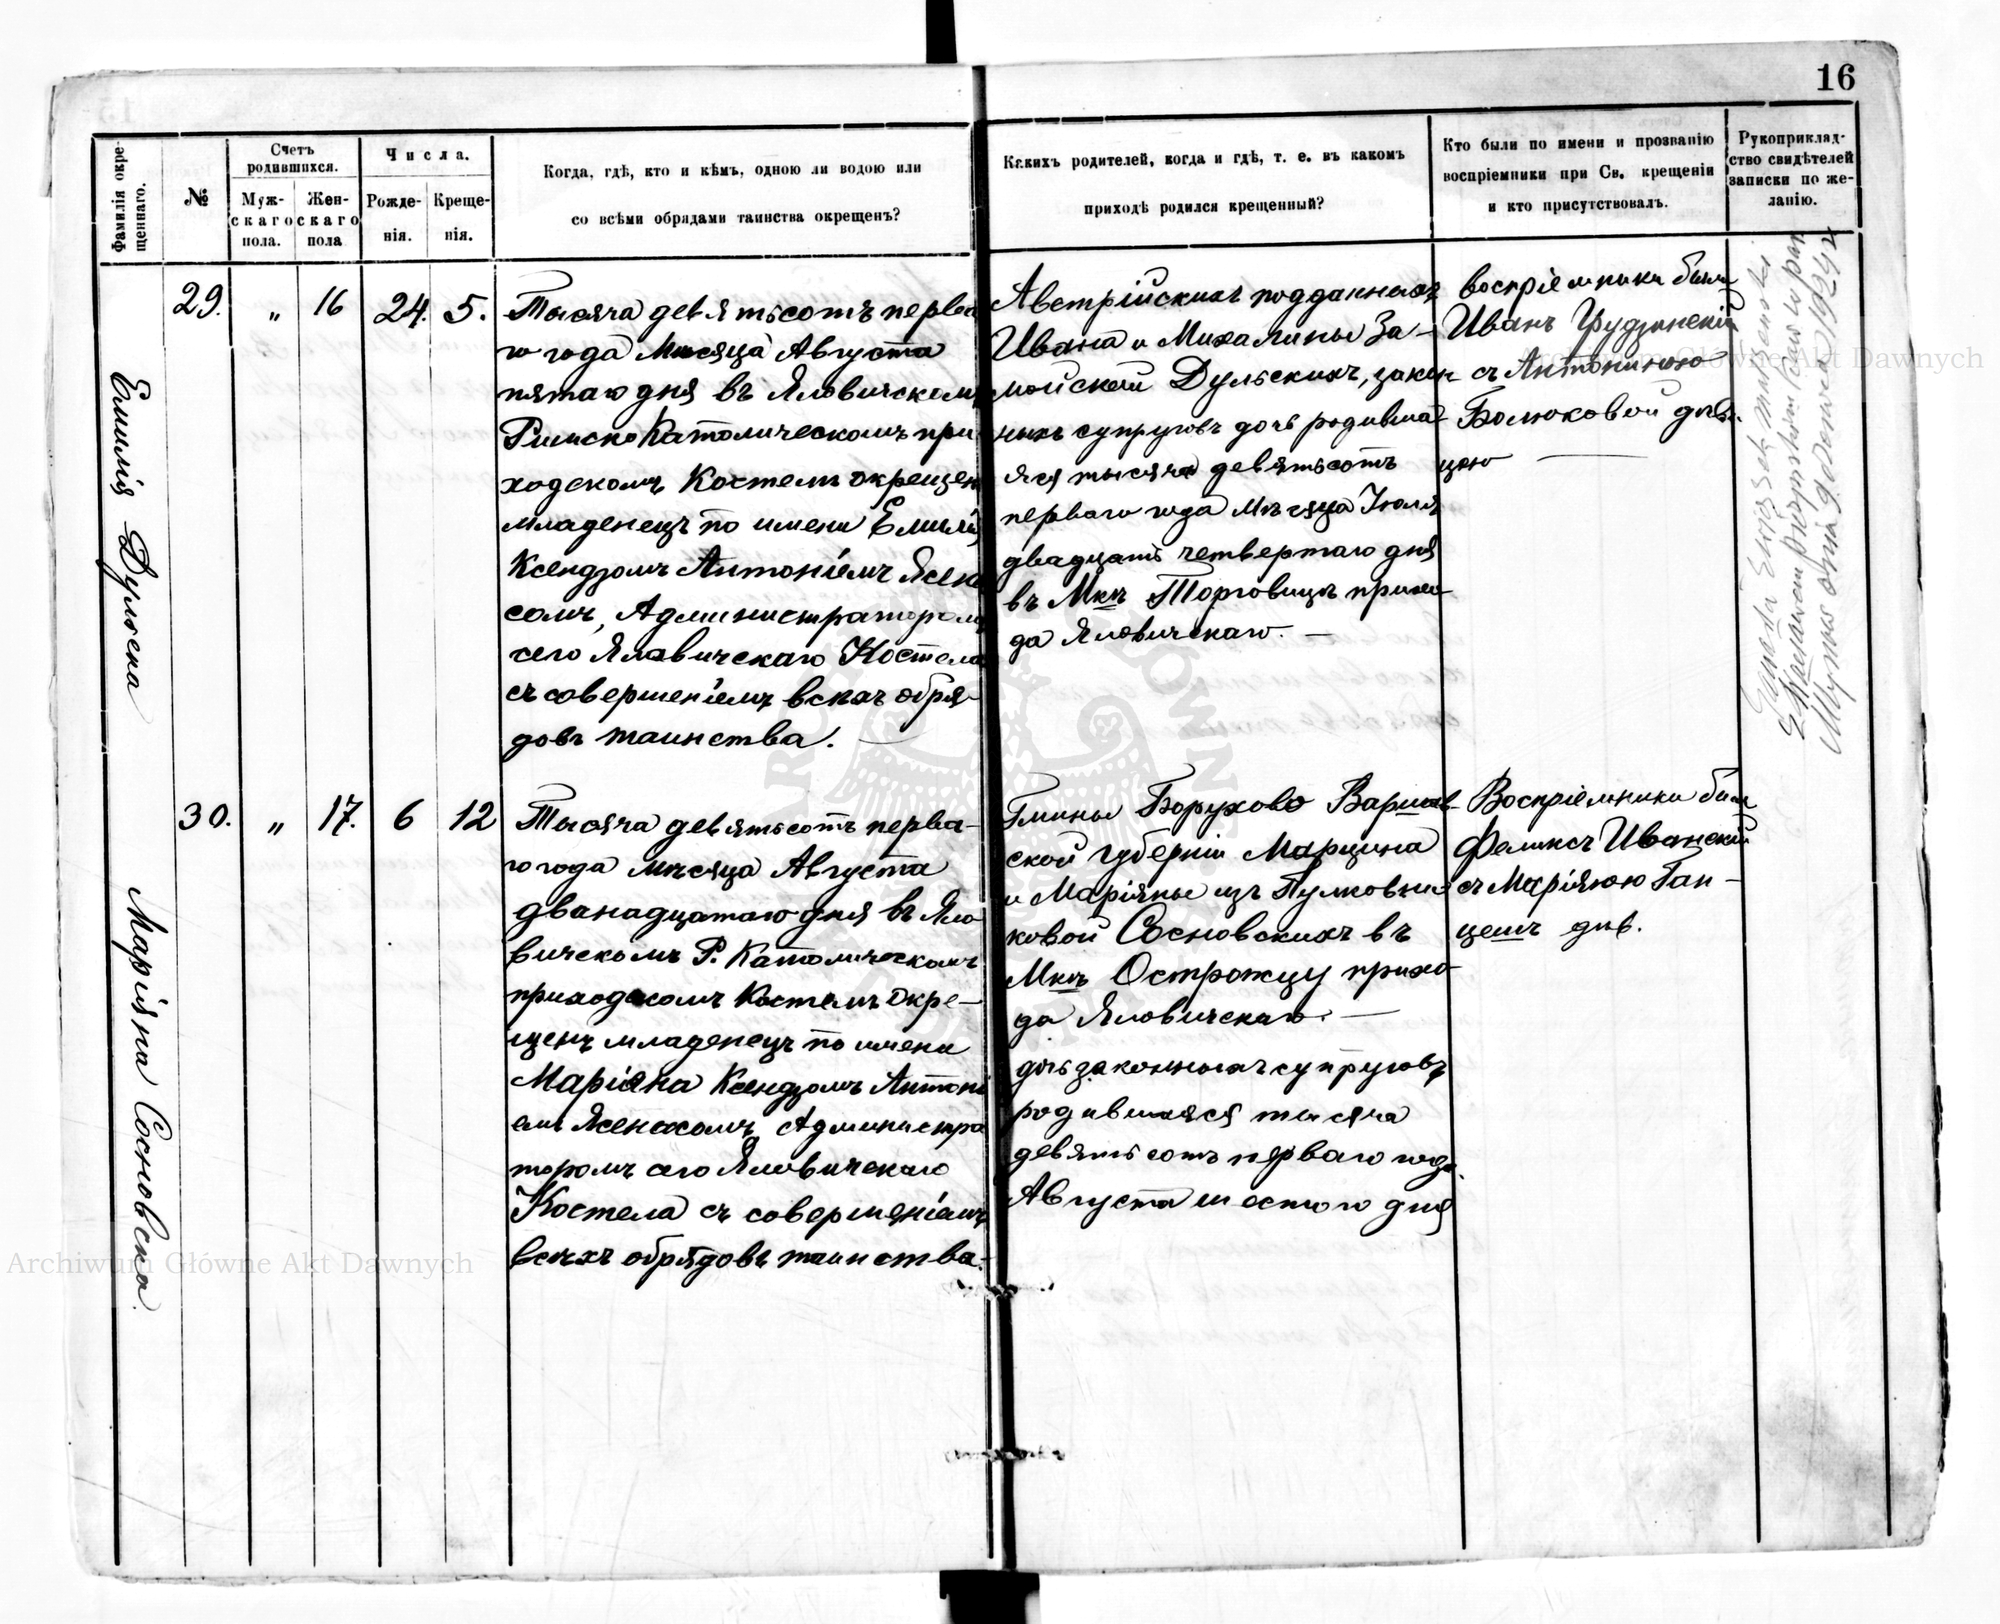 16
Фамилія окре-
щеннаго.
№
Счетъ
родившихся.
Муж-
скаго
пола.
Жен-
скаго
пола
Числа.
Рожде-
нія.
Креще-
нія.
Когда, гдѣ, кто и кѣмъ, одною ли водою или
со всѣми обрядами таинства окрещенъ?
Какихъ родителей, когда и гдѣ, т. е. въ какомъ
приходѣ родился крещенный?
Кто были по имени и прозванію
воспріемники при Св. крещеніи
и кто присутствовалъ.
Рукоприклад-
ство свидѣтелей
записки по же-
ланію.
Емилія Дульска
29.
"
16
24.
5.
Тысяча девятьсотъ перва
го года Мѣсяца Августа
пятаго дня въ Яловичскомъ
Римско Католическомъ при
ходскомъ Костелѣ окрещенъ
младенецъ по имени Емилія
Ксендзомъ Антоніемъ
сомъ, Администраторомъ
сего Яловичскаго Костела
съ совершеніемъ всѣхъ обря-
довъ таинства.
Австрійскихъ подданныхъ
Ивана и Михалины За-
мойской Дульскихъ, закон
ныхъ супруговъ дочь родивша
яся тысяча девятьсотъ
перваго года Мѣсяца Іюля
двадцать четвертаго дня
въ Мкѣ Торговицѣ прихо
да Яловичскаго. —
воспріемники были
Иванъ Грудзинскій
съ Антониною
Болюковой дѣви-
цею
Марiяна Сосновска.
30.
"
17.
6
12
Тысяча девятьсотъ перва-
го года мѣсяца Августа
двѣнадцатаго дня въ Яло
вичскомъ Р. Католическомъ
приходскомъ Костелѣ окре-
щенъ младенецъ по имени
Маріяна Ксендзомъ Антоні
емъ Администра
торомъ сего Яловичскаго
Костела съ совершеніемъ
всѣхъ обрядовъ таинства.
Гмины Борухово Варшав
ской губерніи Марцина
и Маріяны изъ
ковой Сосновскихъ въ
Мкѣ Острожцу прихо
да Яловичскаго. —
дочь законныхъ супруговъ
родившаяся тысяча
девятьсотъ перваго года
Августа шестого дня
Воспріемники были
Феликсъ Иванскій
съ Маріяною Ган-
цешъ дѣв.
Archiwum Główne Akt Dawnych
Archiwum Główne Akt Dawnych